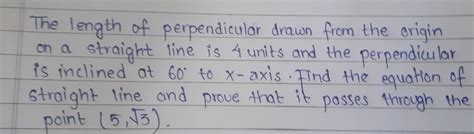 The length of perpendicular drawn from the origin
on a straight line is 4 units and the perpendicular
is inclined at 60° to x-axis. Find the equation of
straight line and prove that it passes through the
point (5,√3).